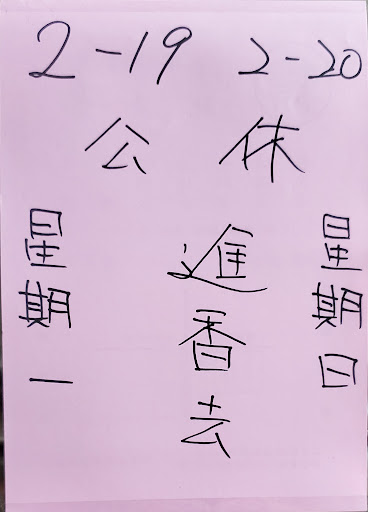 2-19 2-20
公休
星期日
進香去
星期一